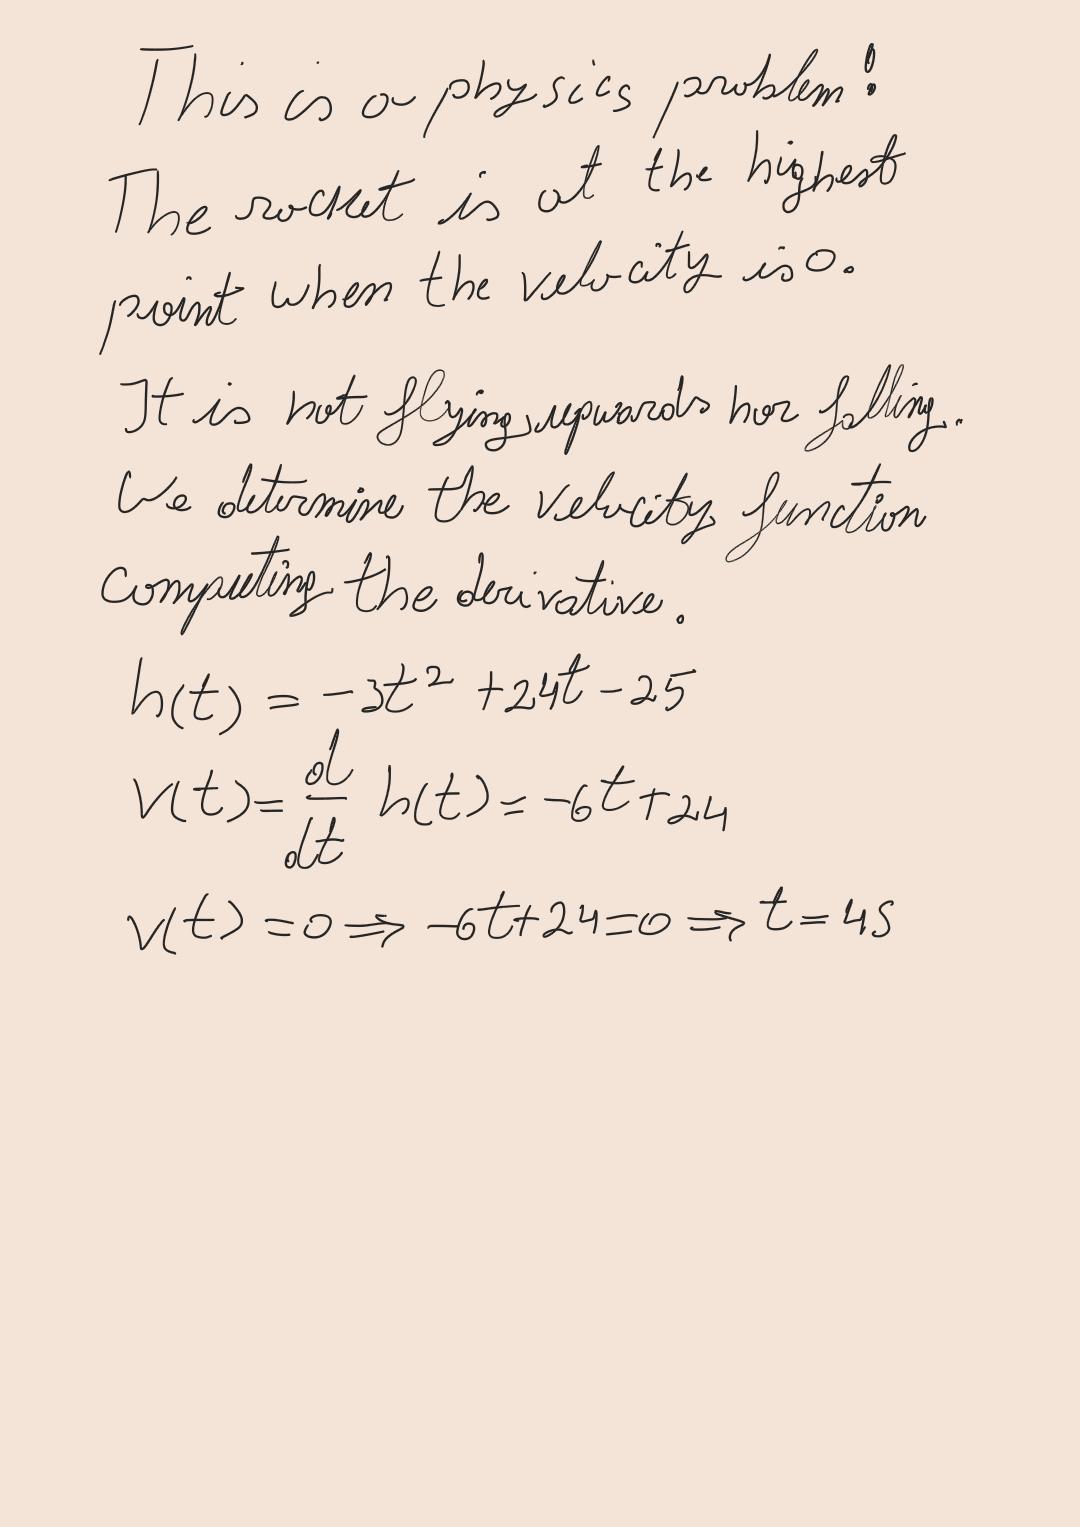 This is a physics problem!
The rocket is at the highest
point when the velocity is 0.
It is not flying upwards nor falling.
We determine the velocity function
computing the derivative.
h(t) = -3t² +24t -25
v(t) = d/dt h(t) = -6t+24
v(t) = 0 ⇒ -6t+24=0 ⇒ t = 4s